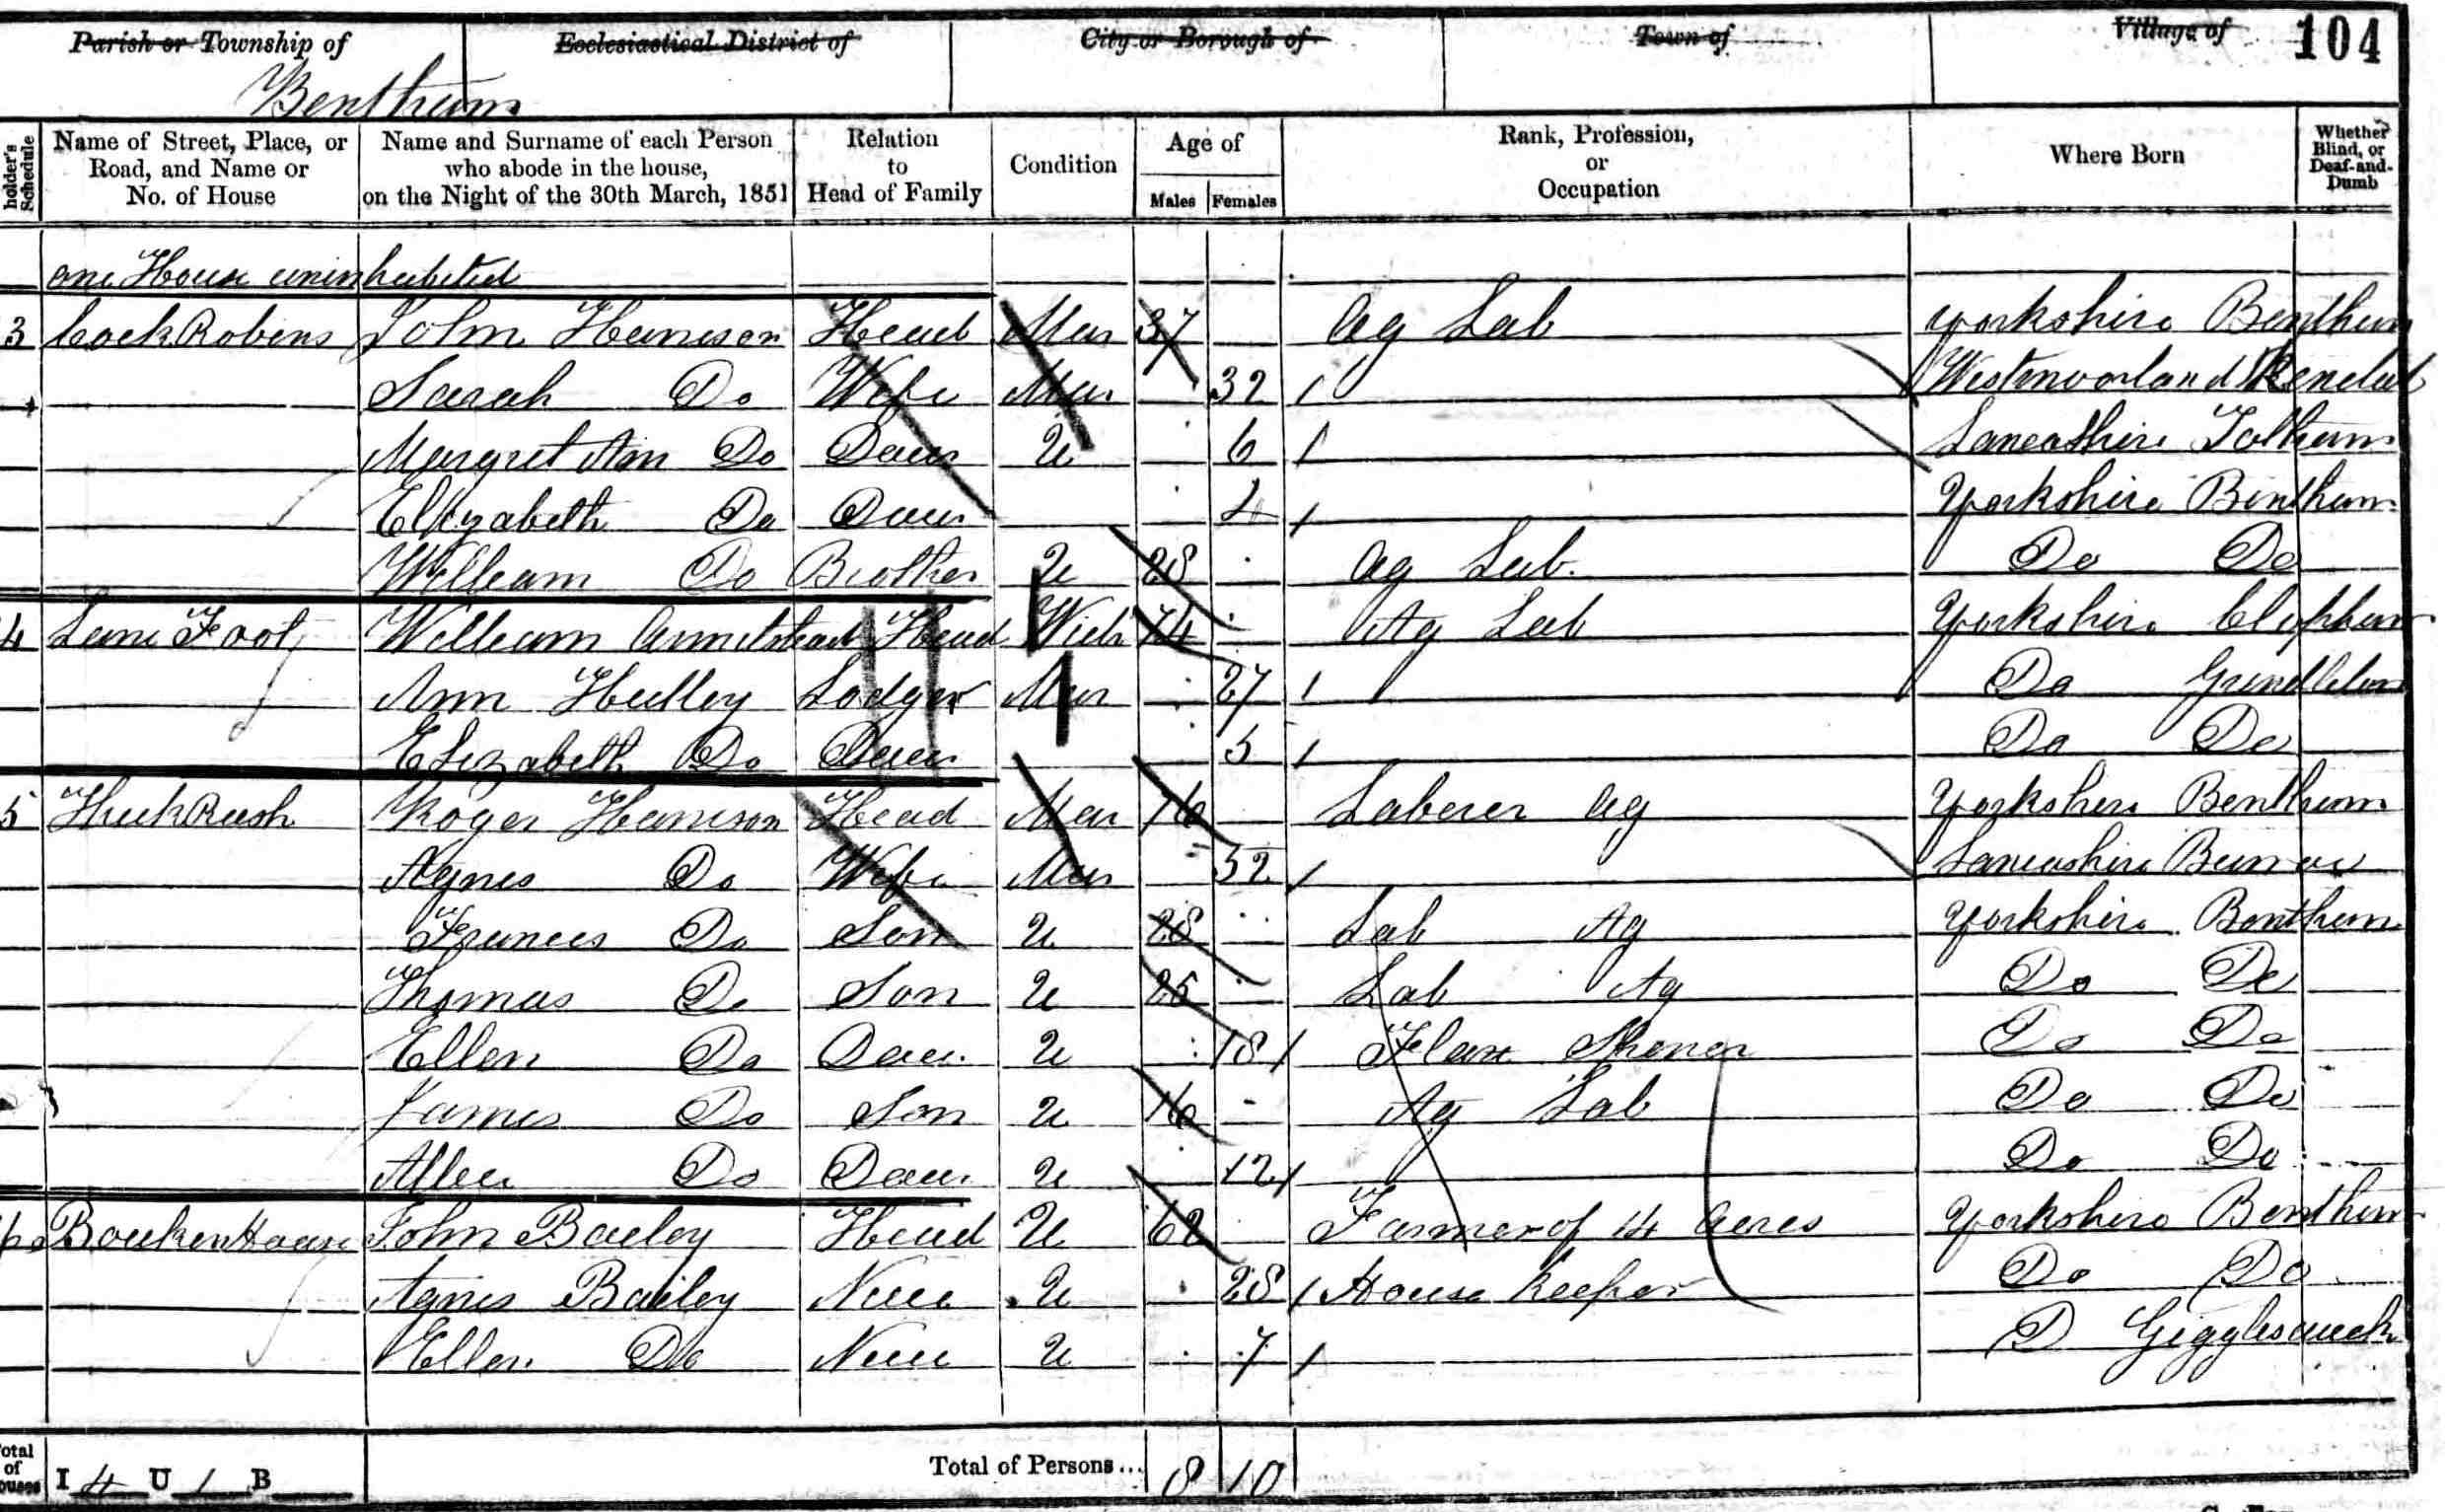 Parish or Township of Ecclesiastical District of City or Borough of Town of Village of 104
Bentham
holder's Schedule Name of Street, Place, or Road, and Name or No. of House Name and Surname of each Person who abode in the house, on the Night of the 30th March, 1851 Relation to Head of Family Condition Age of Males Females Rank, Profession, or Occupation Where Born Whether Blind, or Deaf-and-Dumb
one House uninhabited
3 Cock Robins John Harrison Head Mar 37 Ag Lab Yorkshire Bentham
Sarah Do Wife Mar 32 Westmoorland Kendal
Margret Ann Do Daur U 6 Lancashire Tatham
Elizabeth Do Daur Yorkshire Bentham
William Do Brother U 28 Ag Lab. Do Do
4 Lane Foot William Armitstead Head Widr 74 Ag Lab Yorkshire Clapham
Ann Hulley Lodger Mar 27 Do Grindleton
Elizabeth Do Daur 5 Do Do
5 Roger Harrison Head Mar Laberer Ag Yorkshire Bentham
Agnes Do Wife Mar 52 Lancashire Burrow
Frances Do Son U 28 Lab Ag Yorkshire Bentham
Thomas Do Son U 25 Lab Ag Do Do
Ellen Do Daur. U 18 Flax Do Do
James Do Son U 16 Ag Lab Do Do
Do Daur. U 12 Do Do
John Bailey Head U 62 Farmer of 14 Acres Yorkshire Bentham
Agnes Bailey Niece U 28 House Keeper Do Do
Ellen Do Niece U 7 D Giggleswick
Total of Houses I 4 U 1 B Total of Persons... 8 10